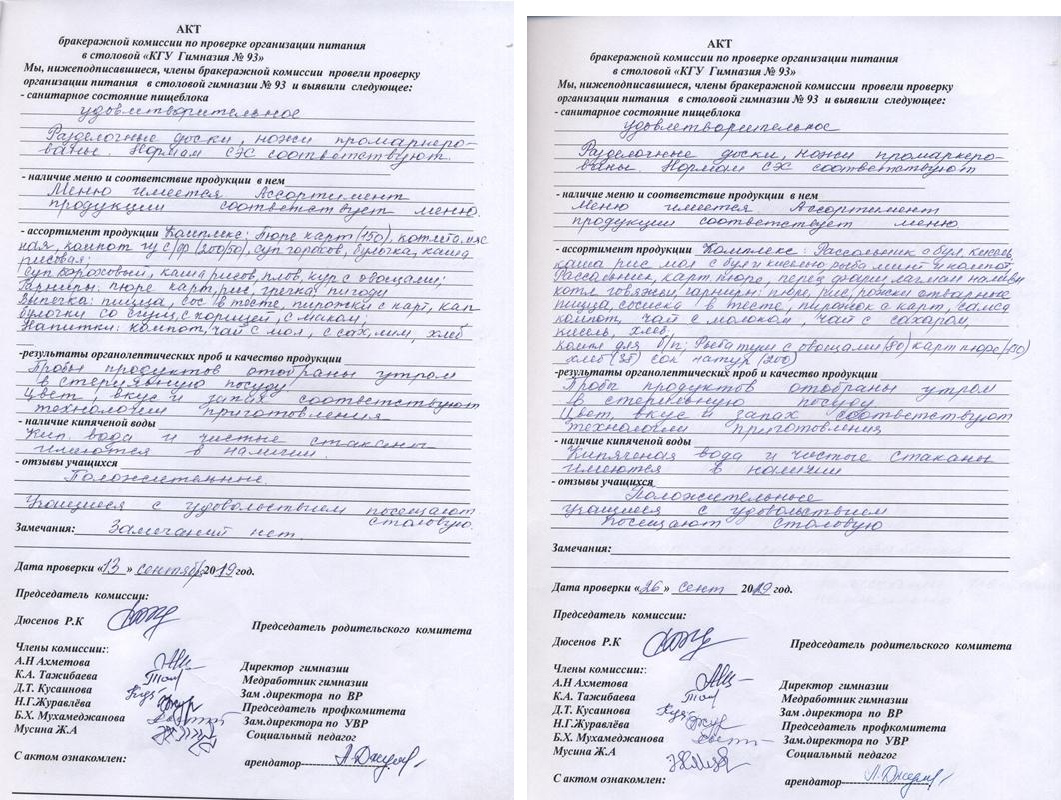 АКТ
бракеражной комиссии по проверке организации питания
в столовой «КГУ Гимназия № 93»
Мы, нижеподписавшиеся, члены бракеражной комиссии провели проверку
организации питания в столовой гимназии № 93 и выявили следующее:
- санитарное состояние пищеблока
удовлетворительное
Разделочные доски, ножи промаркеро-
ваны. Нормам СЭС соответствуют.
- наличие меню и соответствие продукции в нем
Меню имеется Ассортимент
продукции соответствует меню.
- ассортимент продукции Комплекс: Пюре карт (150), котлета мяс
ная, компот чу с/фр (200/50), суп горохов, булочка, каша
рисовая;
Суп гороховый, каша рисов, плов, кур с овощами;
Гарниры: пюре карт, рис, гречка, рагода
Выпечка: пицца, сос в тесте, пирожки с карт, кап
булочки со сгущ, с корицей, с маком;
Напитки: компот, чай с мол, с сах, лим, хлеб
-результаты органолептических проб и качество продукции
Пробы продуктов отобраны утром
в стерильную посуду
Цвет, вкус и запах соответствуют
технологии приготовления
- наличие кипяченой воды
Кип. вода и чистые стаканы
имеются в наличии.
- отзывы учащихся
Положительные.
Учащиеся с удовольствием посещают
столовую.
Замечания: Замечаний нет
Дата проверки «13» сентябр 2019 год.
Председатель комиссии:
Дюсенов Р.К Председатель родительского комитета
Члены комиссии:
А.Н Ахметова Директор гимназии
К.А. Тажибаева Медработник гимназии
Д.Т. Кусаинова Зам .директора по ВР
Н.Г.Журавлёва Председатель профкомитета
Б.Х. Мухамеджанова Зам.директора по УВР
Мусина Ж.А Социальный педагог
С актом ознакомлен: арендатор
АКТ
бракеражной комиссии по проверке организации питания
в столовой «КГУ Гимназия № 93»
Мы, нижеподписавшиеся, члены бракеражной комиссии провели проверку
организации питания в столовой гимназии № 93 и выявили следующее:
- санитарное состояние пищеблока
удовлетворительное
Разделочные доски, ножи промаркеро-
ваны. Нормам СЭС соответствуют
- наличие меню и соответствие продукции в нем
Меню имеется Ассортимент
продукции соответствует меню
- ассортимент продукции Комплекс Рассольник с бул кисель
каша рис мол с бул и киселью рыба минт и компот
Рассольник, карт пюре, перец фарш, лагман
котл говяжьи, гарниры: пюре, рис, рожки отварные
пицца, сосиски в тесте, пирожок с карт, самса
компот, чай с молоком, чай с сахаром,
кисель, хлеб.
Компл для б/п: Рыба туш с овощами (80) карт пюре (150)
хлеб (35) сок натур (200)
-результаты органолептических проб и качество продукции
Пробы продуктов отобраны утром
в стерильную посуду
Цвет, вкус и запах соответствуют
технологии приготовления
- наличие кипяченой воды
Кипяченая вода и чистые стаканы
имеются в наличии
- отзывы учащихся
Положительные
учащиеся с удовольствием
посещают столовую
Замечания:
Дата проверки «26» сент 2019 год.
Председатель комиссии:
Дюсенов Р.К Председатель родительского комитета
Члены комиссии:
А.Н Ахметова Директор гимназии
К.А. Тажибаева Медработник гимназии
Д.Т. Кусаинова Зам .директора по ВР
Н.Г.Журавлёва Председатель профкомитета
Б.Х. Мухамеджанова Зам.директора по УВР
Мусина Ж.А Социальный педагог
С актом ознакомлен: арендатор